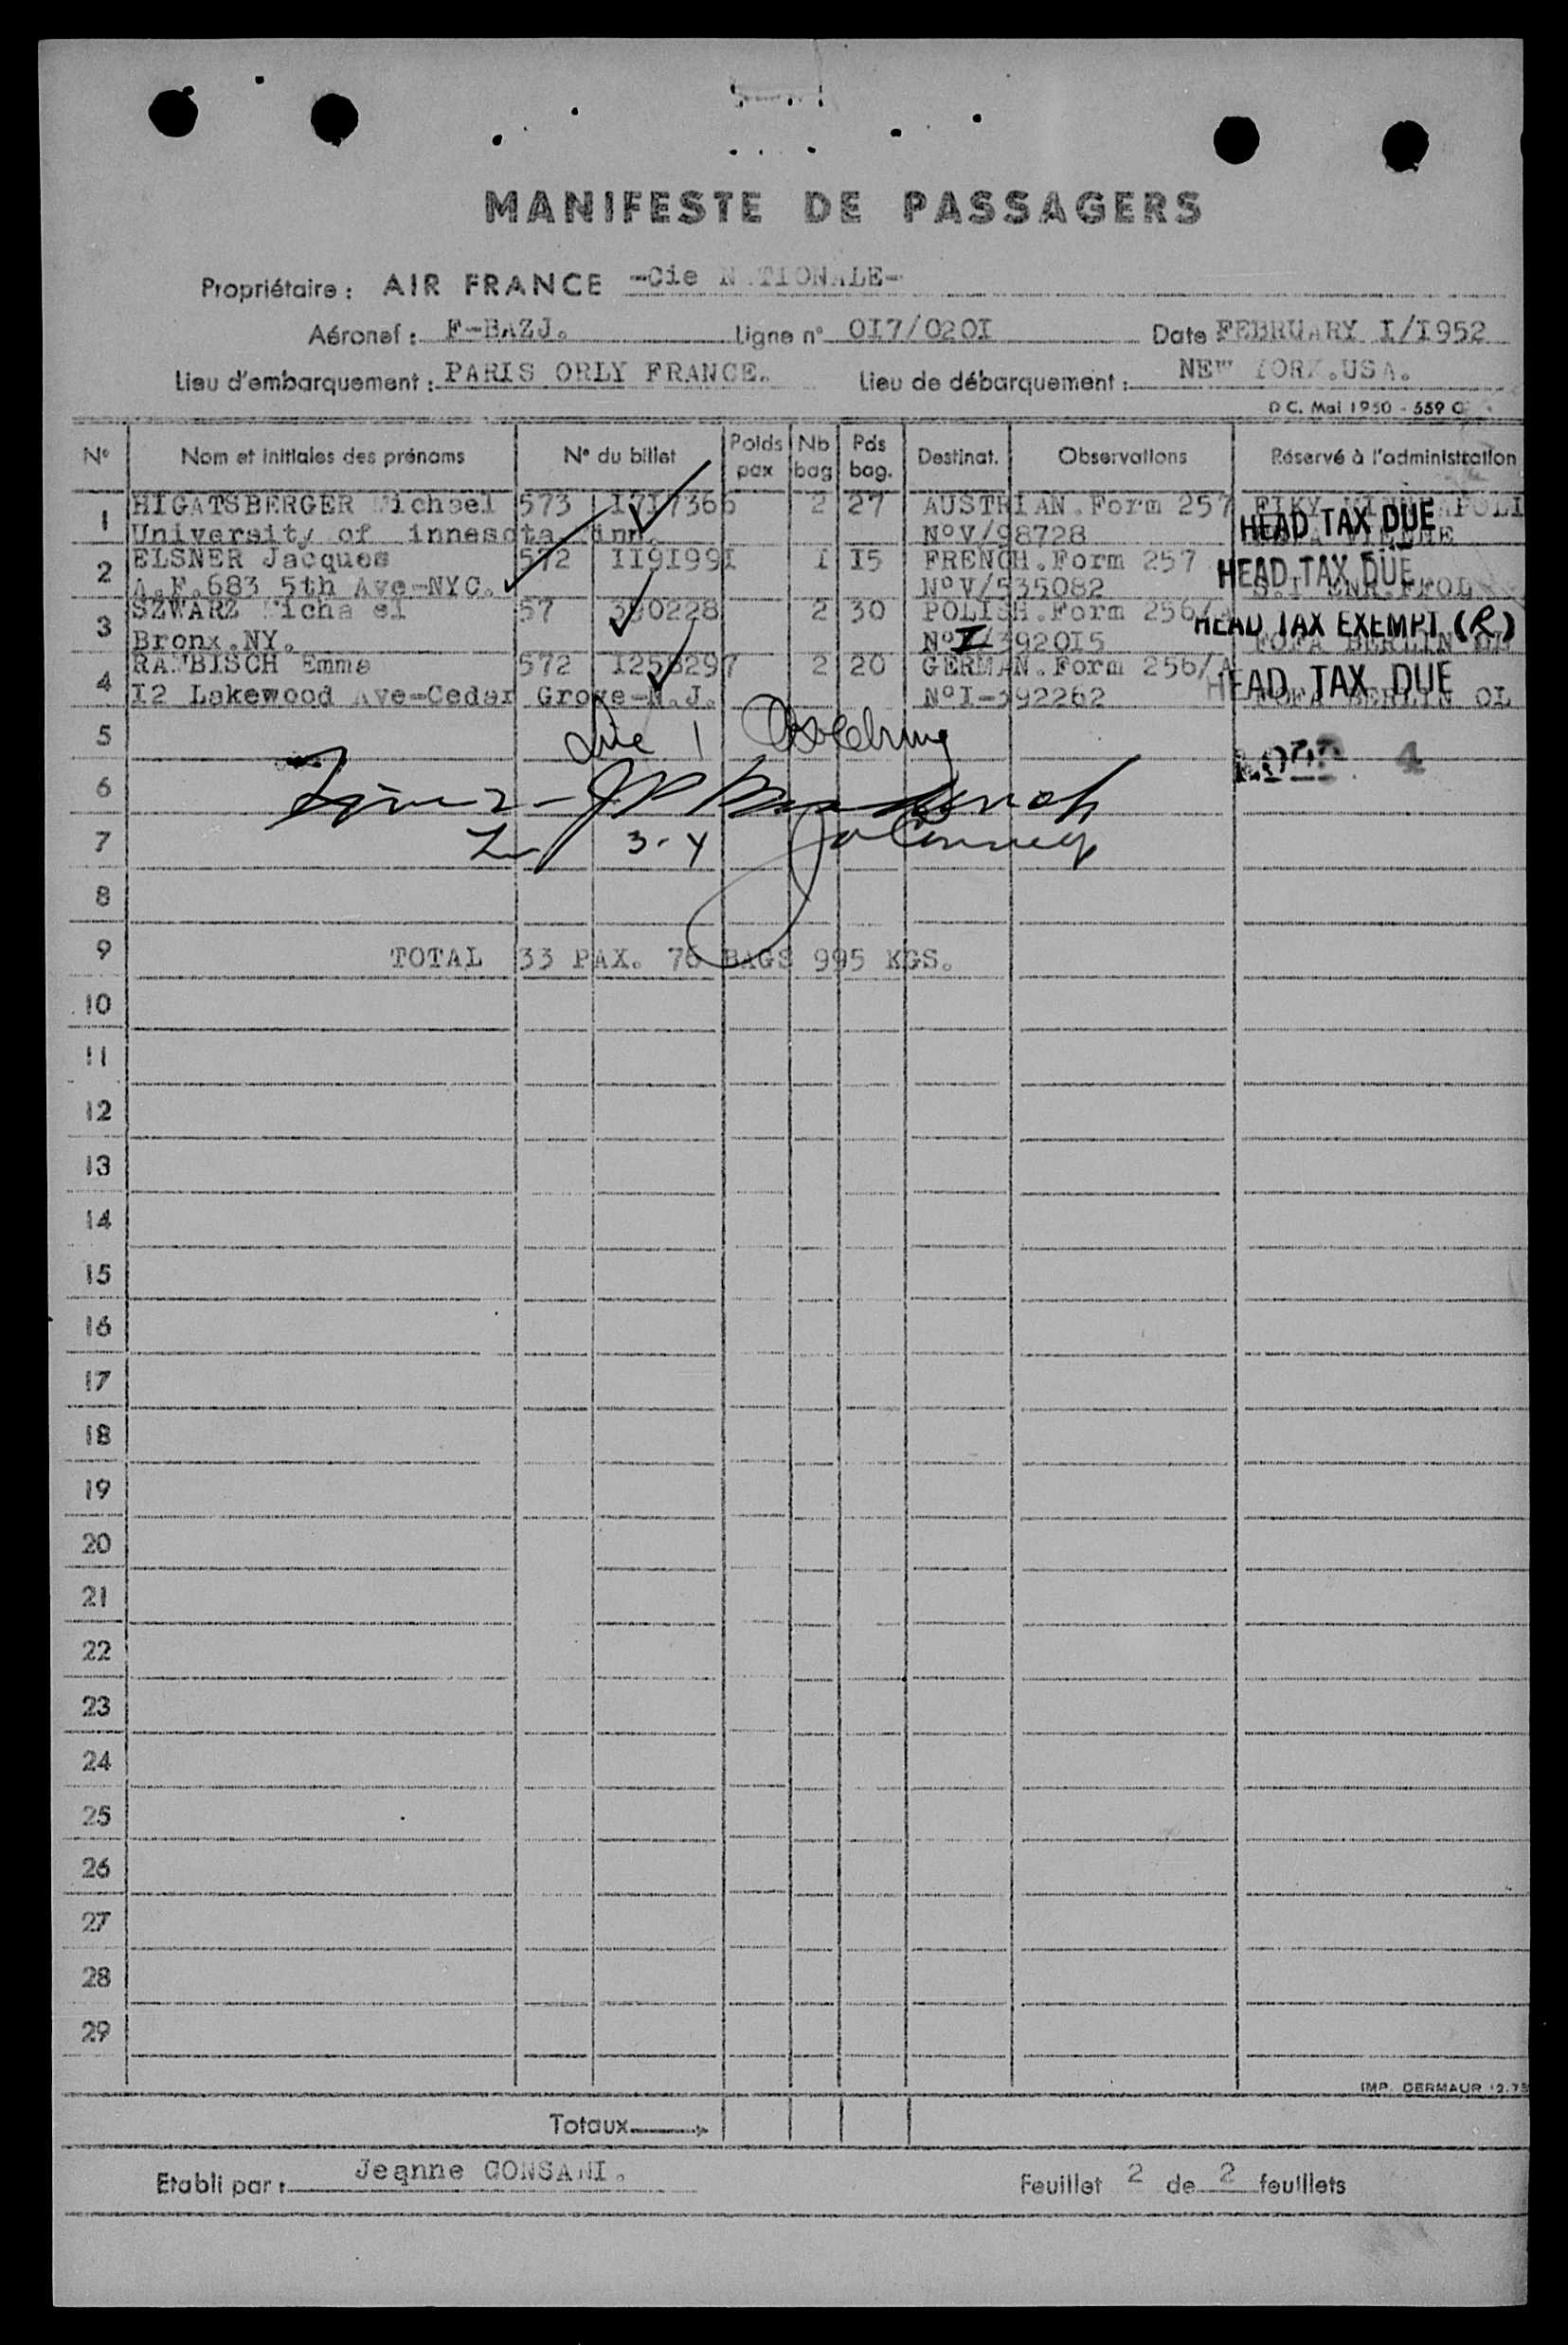 MANIFESTE DE PASSAGERS
Propriétaire : AIR FRANCE -Cie N TIONALE-
Aéronef : F-BAZJ. Ligne n° 0I7/020I Date FEBRUARY I/I952
Lieu d'embarquement : PARIS ORLY FRANCE. Lieu de débarquement : NEW YORK.USA.
D C. Mai 1950 - 559 C
N° Nom et initiales des prénoms N° du billet Poids pax Nb bag Pds bag. Destinat. Observations Réservé à l'administration
1 HIGATSBERGER Michael 573 I717366 2 27 AUSTRIAN.Form 257
University of innesota inn. N°V/98728 HEAD TAX DUE
2 ELSNER Jacques 572 II9I99I I I5 FRENCH.Form 257 HEAD TAX DUE
A.F.683 5th Ave-NYC. N°V/535082
3 SZWARZ Micha el 57 380228 2 30 POLISH.Form 256/A HEAD TAX EXEMPT (R)
Bronx.NY. N°I/392OI5 TOFA BERLIN OL
4 Emma 572 I258297 2 20 GERMAN.Form 256/A HEAD TAX DUE
I2 Lakewood Ave-Cedar Grove-N.J. N°I-392262 TOFA BERLIN OL
5 Line 1
6 4
7 3-4
8
9 TOTAL 33 PAX. 76 BAGS 995 KGS.
10
11
12
13
14
15
16
17
18
19
20
21
22
23
24
25
26
27
28
29
IMP. DERMAUR
Totaux
Etabli par : Jeanne CONSANI. Feuillet 2 de 2 feuillets